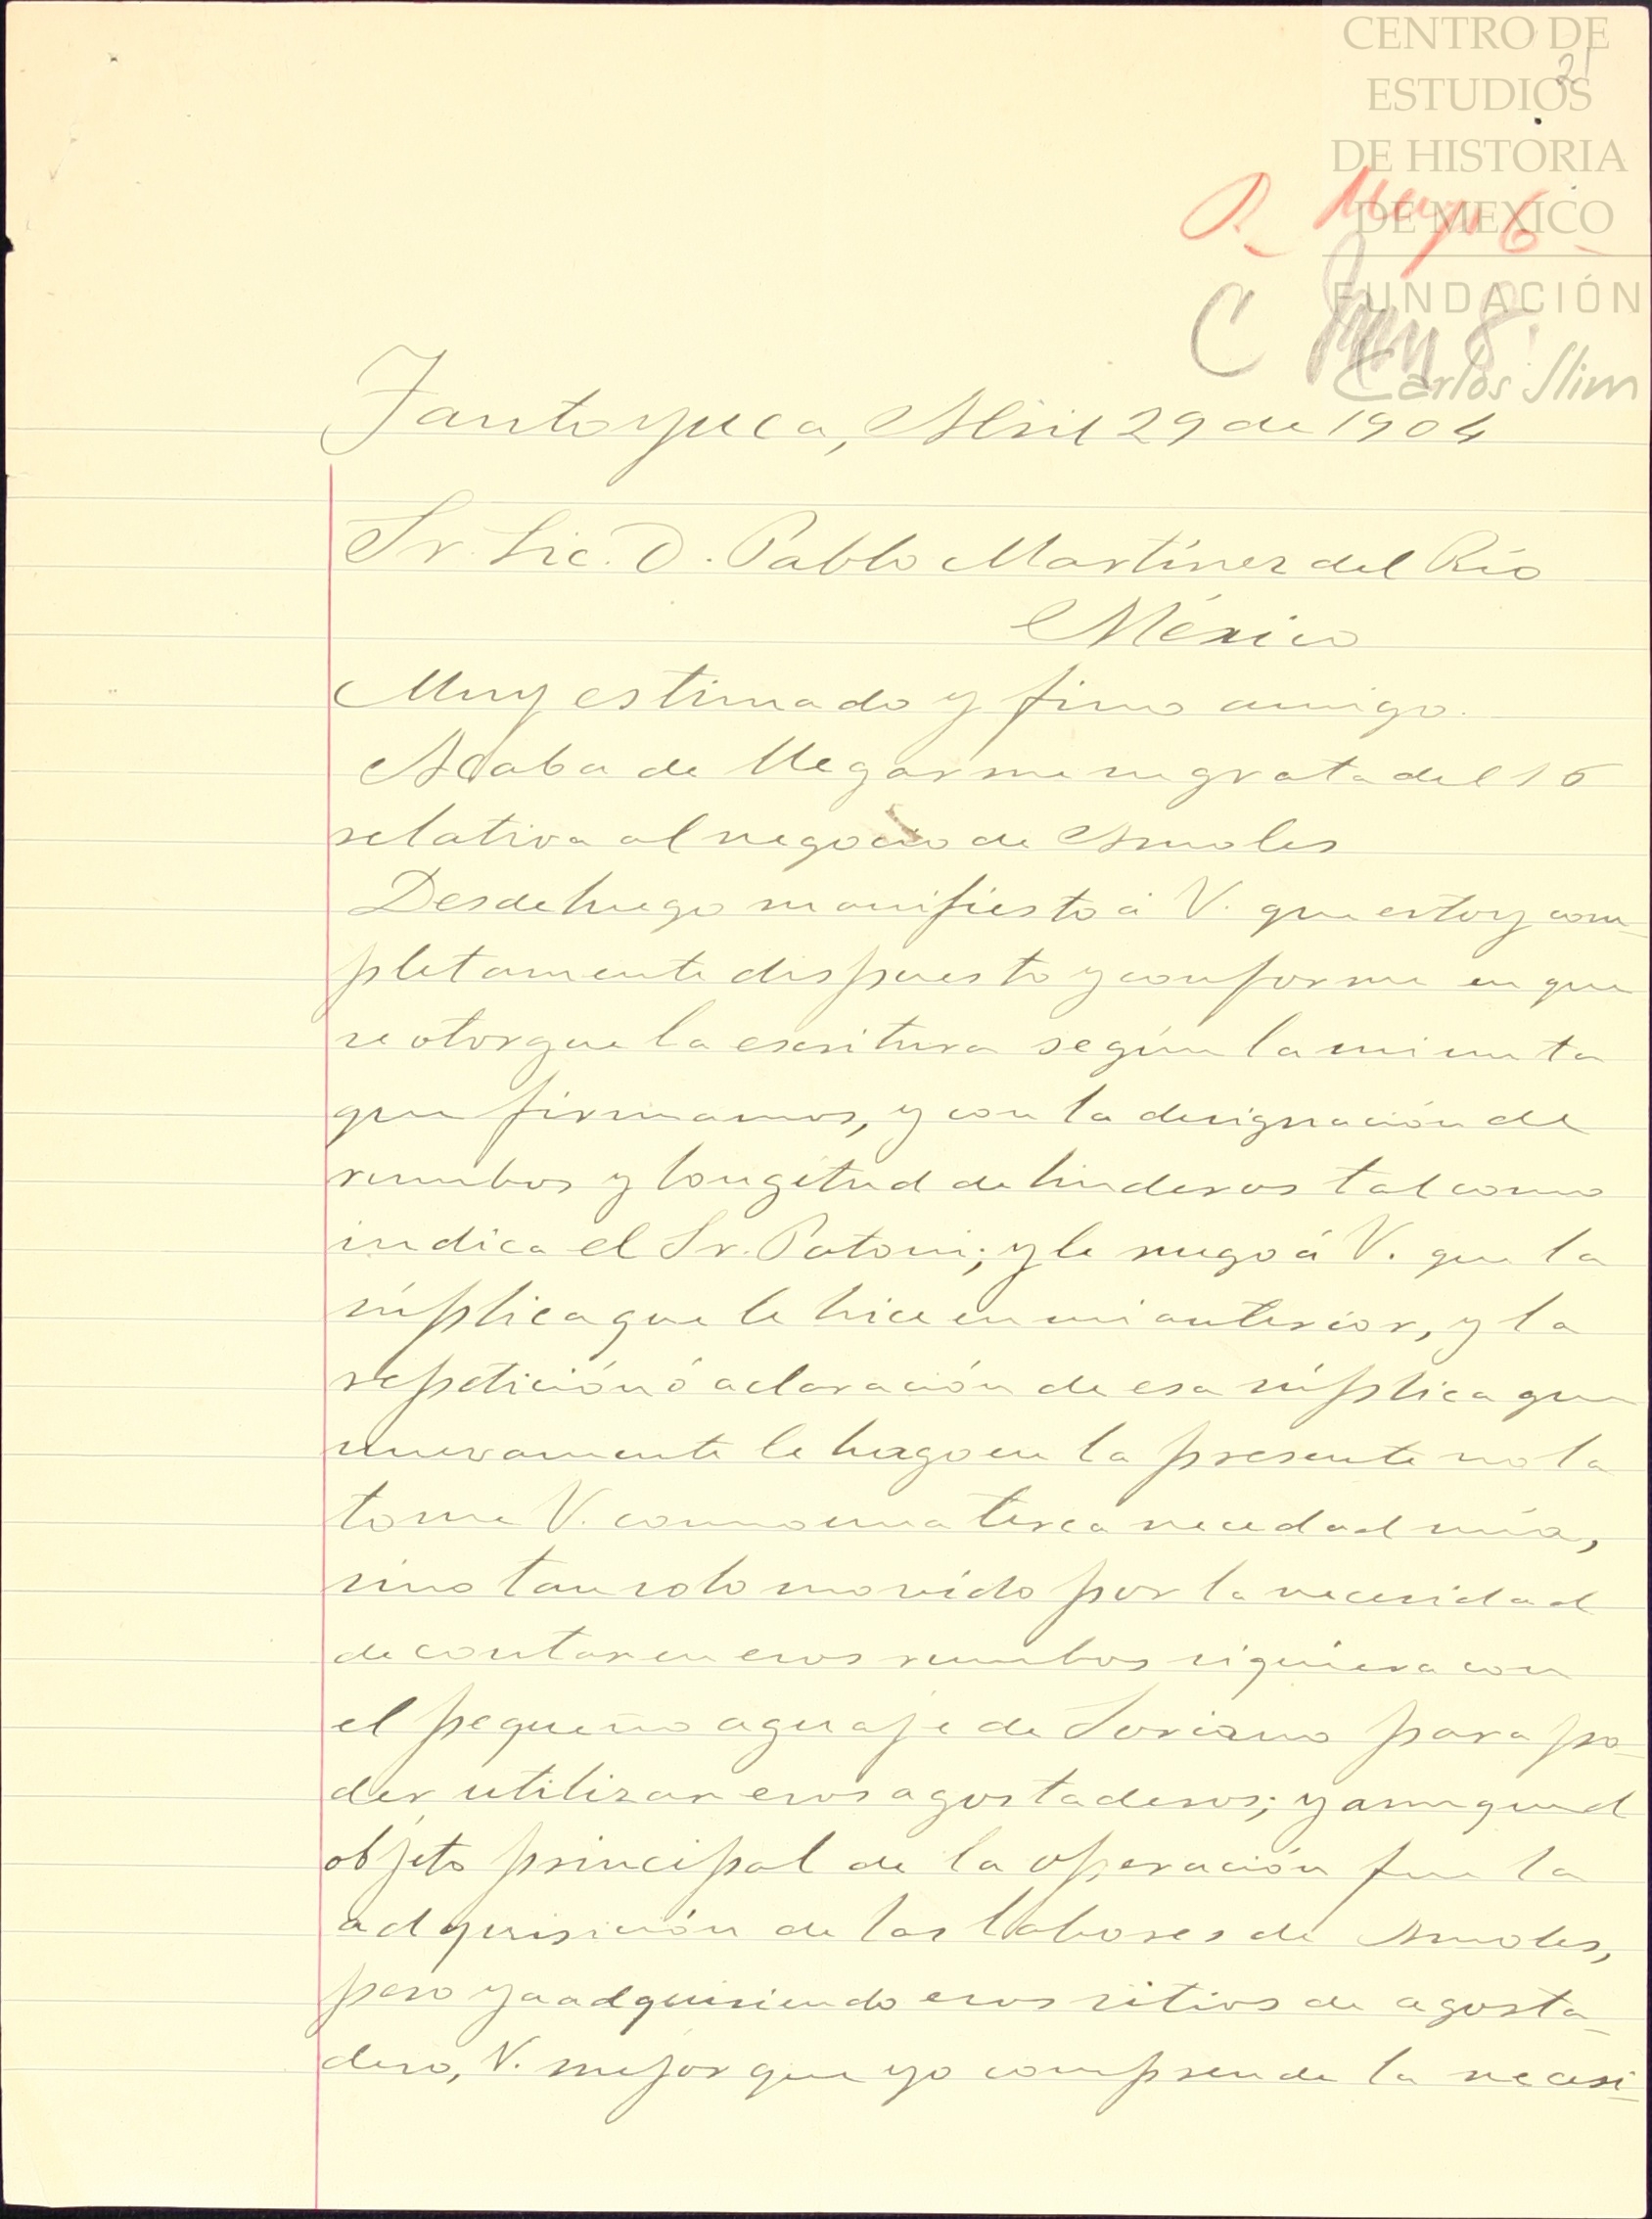 CENTRO DE
ESTUDIOS
DE HISTORIA
DE MEXICO
FUNDACIÓN
Carlos Slim
21
R. Mayo 6
C
Tantoyuca, Abril 29 de 1904
Sr. Lic. D. Pablo Martínez del Río
México
Muy estimado y fino amigo.
Acaba de llegarme su grata del 16
relativa al negocio de Amoles
Desde luego manifiesto á V. que estoy com-
pletamente dispuesto y conforme en que
se otorgue la escritura según la minuta
que firmamos, y con la designación de
rumbos y longitud de linderos tal como
indica el Sr. Patoni; y le ruego á V. que la
súplica que le hice en mi anterior, y la
repetición ó aclaración de esa súplica que
nuevamente le hago en la presente no la
tome V. como una terca necedad mía,
sino tan solo movido por la necesidad
de contar en esos rumbos siquiera con
el pequeño aguaje de Soriano para po-
der utilizar esos agostaderos; y aunque el
objeto principal de la operación fue la
adquisición de las labores de Amoles,
pero ya adquiriendo esos sitios de agosta-
dero, V. mejor que yo comprende la necesi-